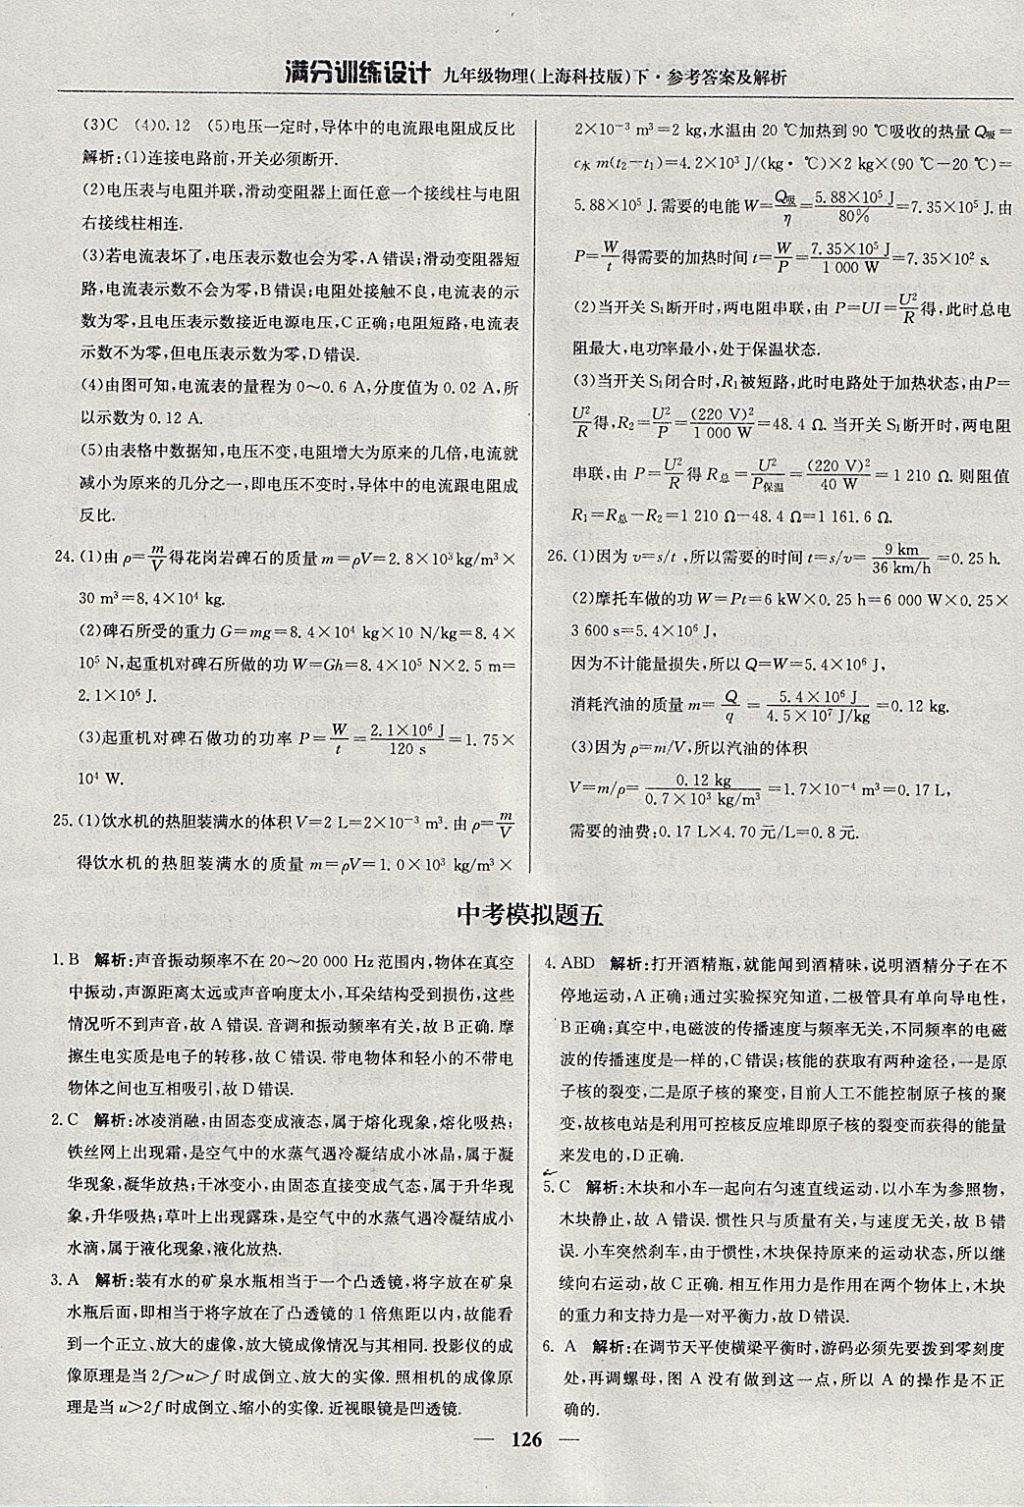 满分训练设计 九年级物理(上海科技版)下·参考答案及解析
(3)C (4)0.12 (5)电压一定时,导体中的电流跟电阻成反比
解析:(1)连接电路前,开关必须断开.
(2)电压表与电阻并联,滑动变阻器上面任意一个接线柱与电阻
右接线柱相连.
(3)若电流表坏了,电压表示数也会为零,A错误;滑动变阻器短
路,电流表示数不会为零,B错误;电阻处接触不良,电流表的示
数为零,且电压表示数接近电源电压,C正确;电阻短路,电流表
示数不为零,但电压表示数为零,D错误.
(4)由图可知,电流表的量程为0～0.6 A,分度值为0.02 A,所
以示数为0.12 A.
(5)由表格中数据知,电压不变,电阻增大为原来的几倍,电流就
减小为原来的几分之一,即电压不变时,导体中的电流跟电阻成
反比.
24.(1)由ρ=m/V得花岗岩碑石的质量m=ρV=2.8×10³kg/m³×
30 m³=8.4×10⁴ kg.
(2)碑石所受的重力G=mg=8.4×10⁴ kg×10 N/kg=8.4×
10⁵ N,起重机对碑石所做的功W=Gh=8.4×10⁵ N×2.5 m=
2.1×10⁶ J.
(3)起重机对碑石做功的功率P=W/t=2.1×10⁶ J/120 s=1.75×
10⁴ W.
25.(1)饮水机的热胆装满水的体积V=2 L=2×10⁻³ m³.由ρ=m/V
得饮水机的热胆装满水的质量m=ρV=1.0×10³ kg/m³×
2×10⁻³ m³=2 kg,水温由20 ℃加热到90 ℃吸收的热量Q吸=
c水 m(t₂-t₁)=4.2×10³ J/(kg·℃)×2 kg×(90 ℃-20 ℃)=
5.88×10⁵ J.需要的电能W=Q吸/η=5.88×10⁵ J/80%=7.35×10⁵ J.由
P=W/t得需要的加热时间t=W/P=7.35×10⁵ J/1 000 W=7.35×10² s.
(2)当开关S₁断开时,两电阻串联,由P=UI=U²/R得,此时总电
阻最大,电功率最小,处于保温状态.
(3)当开关S₁闭合时,R₁被短路,此时电路处于加热状态,由P=
U²/R得,R₂=U²/P=(220 V)²/1 000 W=48.4 Ω.当开关S₁断开时,两电阻
串联,由P=U²/R得R总=U²/P保温=(220 V)²/40 W=1 210 Ω.则阻值
R₁=R总-R₂=1 210 Ω-48.4 Ω=1 161.6 Ω.
26.(1)因为v=s/t,所以需要的时间t=s/v=9 km/36 km/h=0.25 h.
(2)摩托车做的功W=Pt=6 kW×0.25 h=6 000 W×0.25×
3 600 s=5.4×10⁶ J,
因为不计能量损失,所以Q=W=5.4×10⁶ J,
消耗汽油的质量m=Q/q=5.4×10⁶ J/4.5×10⁷ J/kg=0.12 kg.
(3)因为ρ=m/V,所以汽油的体积
V=m/ρ=0.12 kg/0.7×10³ kg/m³=1.7×10⁻⁴ m³=0.17 L,
需要的油费:0.17 L×4.70 元/L=0.8元.
中考模拟题五
1.B 解析:声音振动频率不在20～20 000 Hz范围内,物体在真空
中振动,声源距离太远或声音响度太小,耳朵结构受到损伤,这些
情况听不到声音,故A错误.音调和振动频率有关,故B正确.摩
擦生电实质是电子的转移,故C错误.带电物体和轻小的不带电
物体之间也互相吸引,故D错误.
2.C 解析:冰凌消融,由固态变成液态,属于熔化现象,熔化吸热;
铁丝网上出现霜,是空气中的水蒸气遇冷凝结成小冰晶,属于凝
华现象,凝华放热;干冰变小,由固态直接变成气态,属于升华现
象,升华吸热;草叶上出现露珠,是空气中的水蒸气遇冷凝结成小
水滴,属于液化现象,液化放热.
3.A 解析:装有水的矿泉水瓶相当于一个凸透镜,将字放在矿泉
水瓶后面,即相当于将字放在了凸透镜的1倍焦距以内,故能看
到一个正立、放大的虚像,放大镜成像情况与其相同.投影仪的成
像原理是当2f>u>f时成倒立、放大的实像.照相机的成像原
理是当u>2f时成倒立、缩小的实像.近视眼镜是凹透镜.
4.ABD 解析:打开酒精瓶,就能闻到酒精味,说明酒精分子在不
停地运动,A正确;通过实验探究知道,二极管具有单向导电性,
B正确;真空中,电磁波的传播速度与频率无关,不同频率的电磁
波的传播速度是一样的,C错误;核能的获取有两种途径,一是原
子核的裂变,二是原子核的聚变,目前人工不能控制原子核的聚
变,故核电站是利用可控核反应堆即原子核的裂变而获得的能量
来发电的,D正确.
5.C 解析:木块和小车一起向右匀速直线运动,以小车为参照物,
木块静止,故A错误.惯性只与质量有关,与速度无关,故B错
误.小车突然刹车,由于惯性,木块保持原来的运动状态,所以继
续向右运动,故C正确.相互作用力是作用在两个物体上,木块
的重力和支持力是一对平衡力,故D错误.
6.A 解析:在调节天平使横梁平衡时,游码必须先要拨到零刻度
处,再调螺母,图A没有做到这一点,所以A的操作是不正
确的.
— 126 —